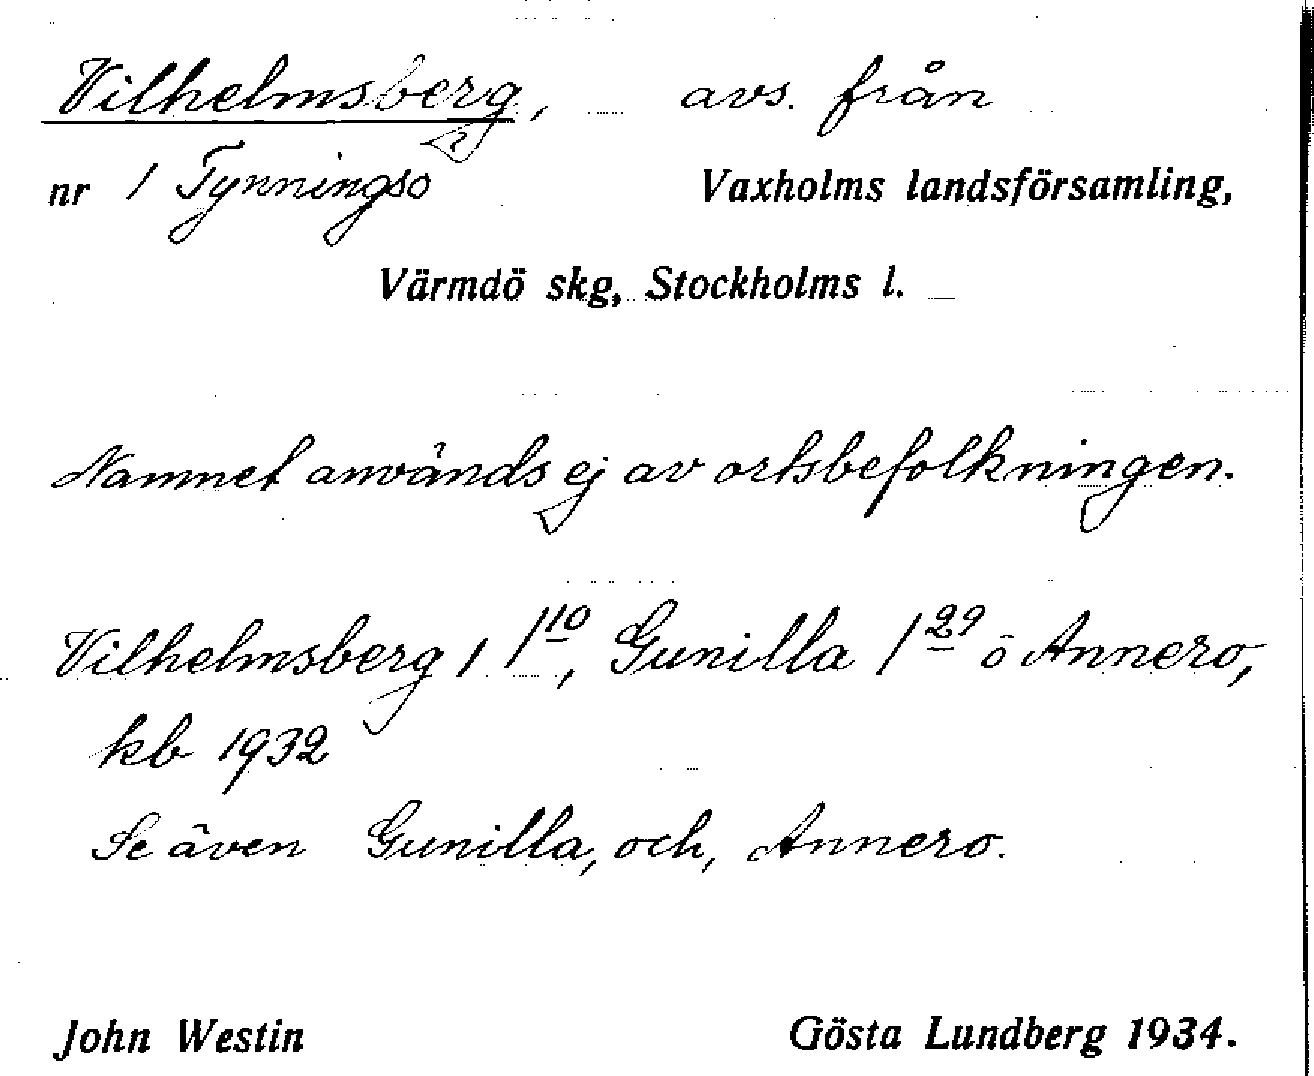 Vilhelmsberg, avs. från
nr 1 Tynningsö Vaxholms landsförsamling,
Värmdö skg, Stockholms l.
Namnet används ej av ortsbefolkningen.
Vilhelmsberg 1 1¹⁰, Gunilla 1²⁹ o Annero,
kb 1932
Se även Gunilla, och, Annero.
John Westin Gösta Lundberg 1934.